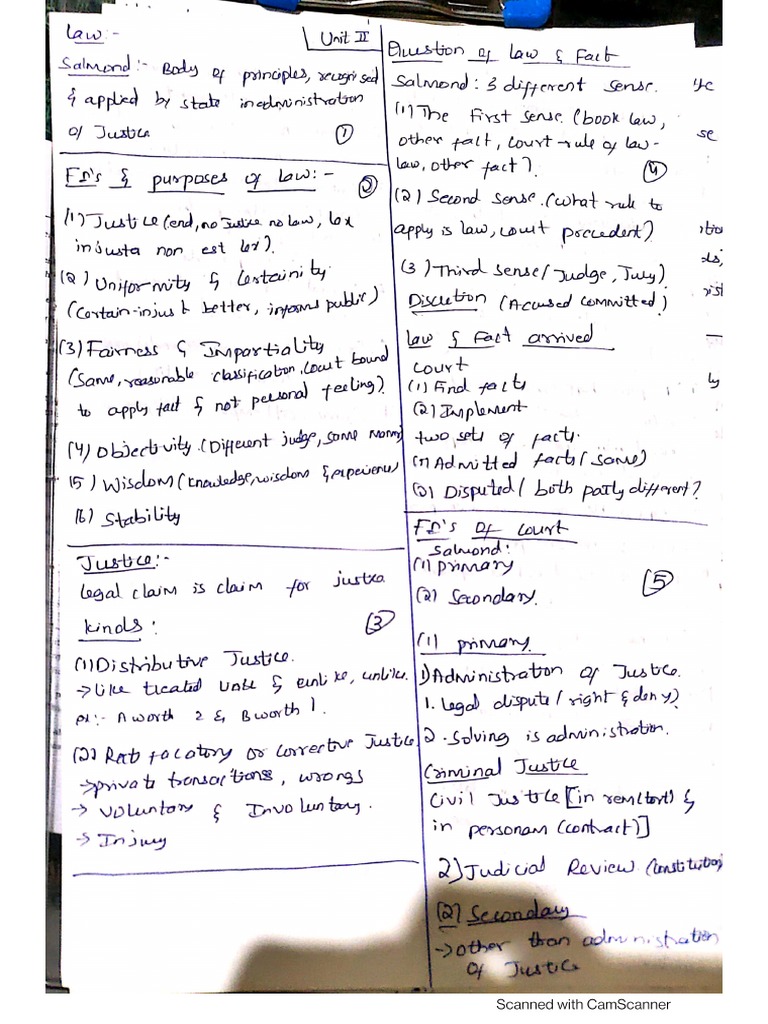 Law:-
Unit II
Salmond:- Body of principles, recognised
& applied by state in administration
of Justice
①
Fn's & purposes of law:-
②
(1) Justice (end, no Justice no law, lex
injusta non est lex).
(2) Uniformity & Certainity
(certain-injust better, informs public)
(3) Fairness & Impartiality
(same, reasonable classification, court bound
to apply fact & not personal feeling).
(4) Objectivity. (Different judge, same norm)
(5) Wisdom (knowledge, wisdom & experience)
(6) Stability
Justice:-
legal claim is claim for justice
kinds:
③
(1) Distributive Justice.
→ like treated & unlike, unlike.
A worth 2 & B worth 1.
(2) or Corrective Justice
→ private transactions, wrongs
→ Voluntary & Involuntary.
→ Injury
Question of law & Fact
Salmond: 3 different sense.
(1) The First sense. (book law,
other fact, court-rule of law-
law, other fact).
④
(2) Second sense. (what rule to
apply is law, court precedent)
(3) Third sense (Judge, Jury)
Discretion (Accused committed)
law & Fact arrived
Court
(1) Find facts
(2) Implement
two sets of facts.
(1) Admitted facts (same)
(2) Disputed (both party different)
Fn's of court
Salmond:
(1) primary
(2) Secondary.
⑤
(1) primary.
1) Administration of Justice.
1. legal dispute (right & deny)
2. Solving is administration.
Criminal Justice
Civil Justice [in rem (tort) &
in personam (contract)]
2) Judicial Review (Constitution)
(2) Secondary
→ other than administration
of Justice
Scanned with CamScanner